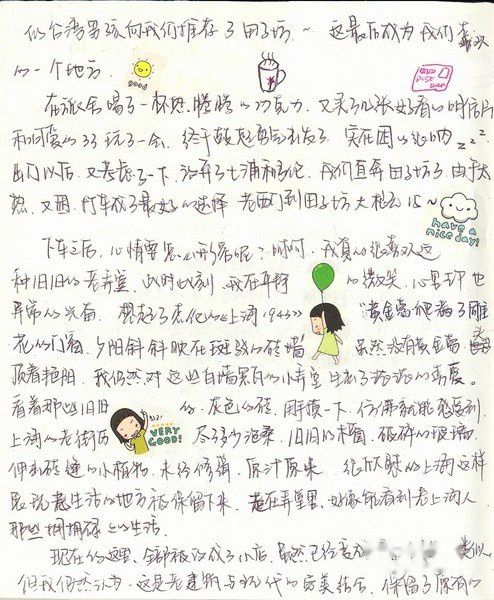 的台湾男孩向我们推荐了田子坊.~ 这最后成为我们喜欢
的一个地方.
good
在旅舍喝了一杯热腾腾的巧克力.又买了几张好看的明信片
和可爱的33玩了一会.终于鼓起勇气出发了.实在困的很呐 zzz
出门以后.又考虑了一下.放弃了七浦和其他.我们直奔田子坊了.由于太
热.又困.打车成了最好的选择 老西门到田子坊大概为15~
have a nice day!
下车之后.心情要怎么形容呢?啊呵.我真的很喜欢这
种旧旧的老弄堂.此时此刻.我在弄堂 的微笑.心里却也
异常的兴奋. 想起了 他的《上海1943》 "黄金葛爬满了雕
花的门窗.夕阳斜斜映在斑驳的砖墙" 虽然没有黄金葛
顶着艳阳.我仍然对这些白墙黑瓦的小弄堂生出了浓浓的喜爱.
看着那些旧旧 的.灰色的砖.用手摸一下.仿佛就能感受到
上海的老街历 尽了多少沧桑.旧旧的木窗.破碎的玻璃.
VERY GOOD!
伸出砖缝的小植物.未经修葺.原汁原味. 很欣慰的上海这样
老生活的地方被保留下来. 走在弄堂里.好像能看到老上海人
那些拥拥碌碌的生活.
现在的这里.全部被改成了小店.虽然已经变成 类似
但我仍然认为.这是老建筑与现代的完美结合.保留了原有的